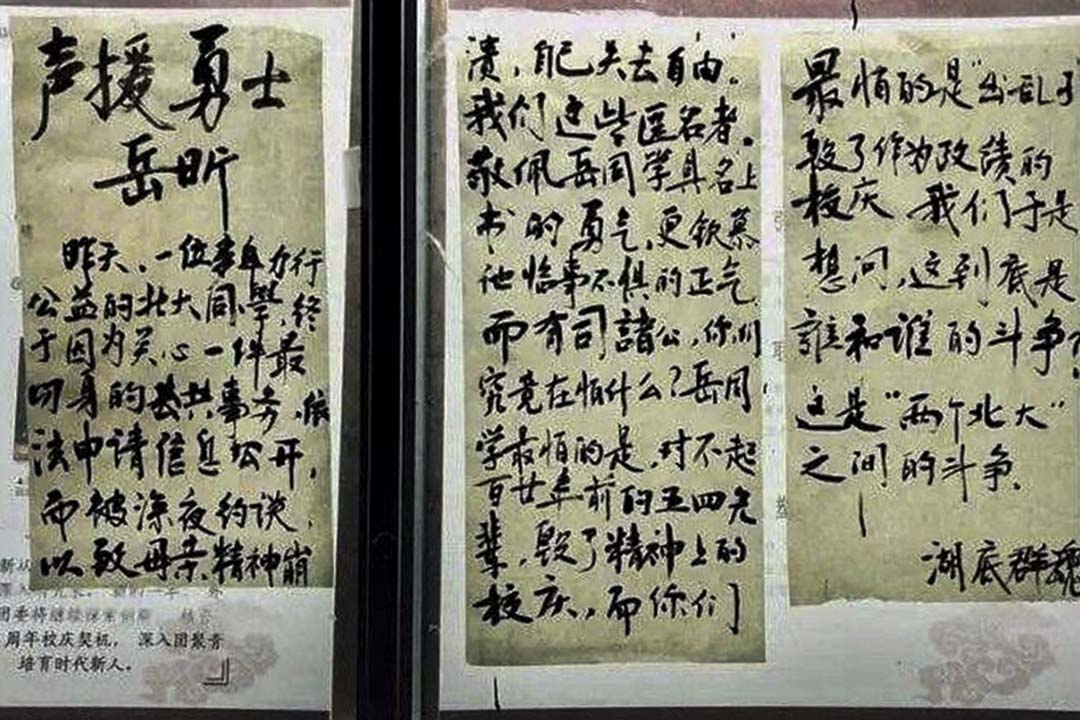 声援勇士
岳昕
昨天，一位本身力行
公益的北大同學，终
于因为关心一件最
切身的公共事务，依
法申请信息公开，
而被深夜约谈，
以致母亲精神崩
溃，自己失去自由。
我们这些匿名者。
敬佩岳同学具名上
书的勇气，更钦慕
他临事不惧的正气
而有司諸公，你们
究竟在怕什么？岳同
学最怕的是，对不起
百廿年前的五四先
辈，毁了精神上的
校庆，而你们
最怕的是“出乱子
毁了作为政绩的
校庆 我们于是
想问，这到底是
谁和谁的斗争？
这是“两个北大”
之间的斗争。
湖底群魂
周年校庆契机， 深入团聚青
培育时代新人。